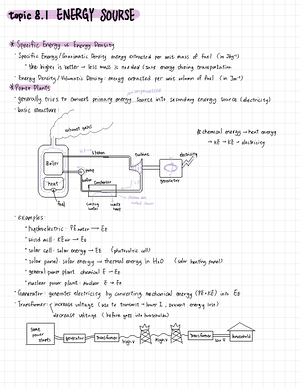 topic 8.1 ENERGY SOURSE
* Specific Energy vs Energy Density
· Specific Energy/Gravimetric Density: energy extracted per unit mass of fuel (in Jkg⁻¹)
· the higher is better → less mass is needed (same energy during transportation
· Energy Density/Volumetric Density: energy extracted per unit volume of fuel (in Jm⁻³)
* Power Plants
· generally tries to convert primary energy source into secondary energy source (electricity)
· basic structure:
exhaust gases
steam
turbine
electricity
* chemical energy → heat energy
→ KE → KE → electricity
Boiler
pump
water
generator
Condenser
heat
fuel
cooling water
waste heat
· examples
· hydroelectric: PE water → EE
· wind mill: KE air → EE
· solar cell: solar energy → EE (photovoltaic cell)
· solar panel: solar energy → thermal energy in H₂O (solar heating panel)
· general power plant: chemical E → EE
· nuclear power plant: nuclear E → EE
· Generator: generates electricity by converting mechanical energy (PE+KE) into EE
· Transformer: increase voltage (use to transmit = lower I, prevent energy loss)
decrease voltage (before goes into household)
some power starts
generator
Transformer
high V
high V
Transformer
low V
household